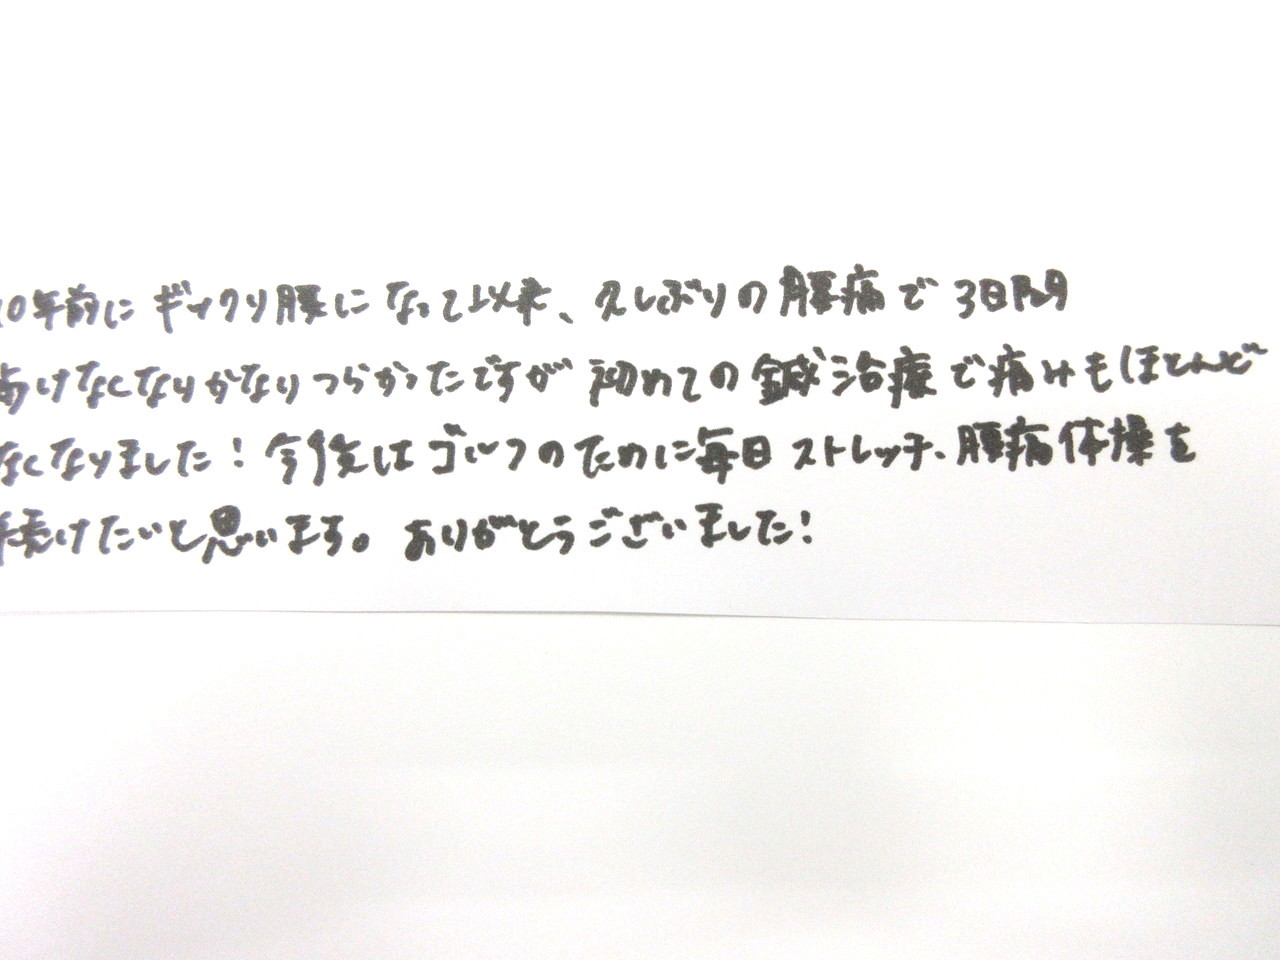 10年前にギックリ腰になって以来、久しぶりの腰痛で3日間
動けなくなりかなりつらかったですが初めての鍼治療で痛みもほとんど
なくなりました！今後はゴルフのために毎日ストレッチ、腰痛体操を
続けたいと思います。ありがとうございました！